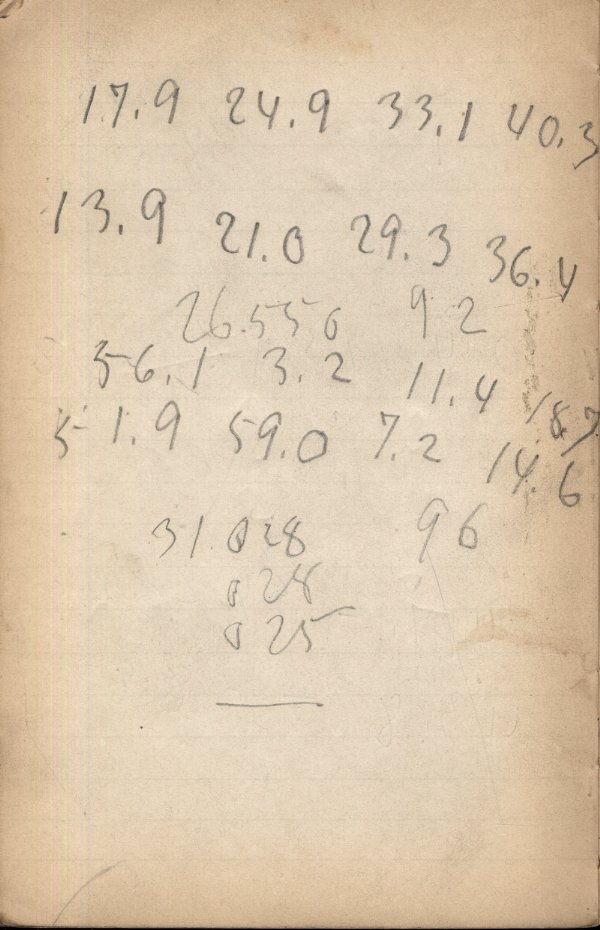 17.9 24.9 33.1 40.3
13.9 21.0 29.3 36.4
26.556 92
56.1 3.2 11.4 18.7
51.9 59.0 7.2 14.6
31.028 96
028
025